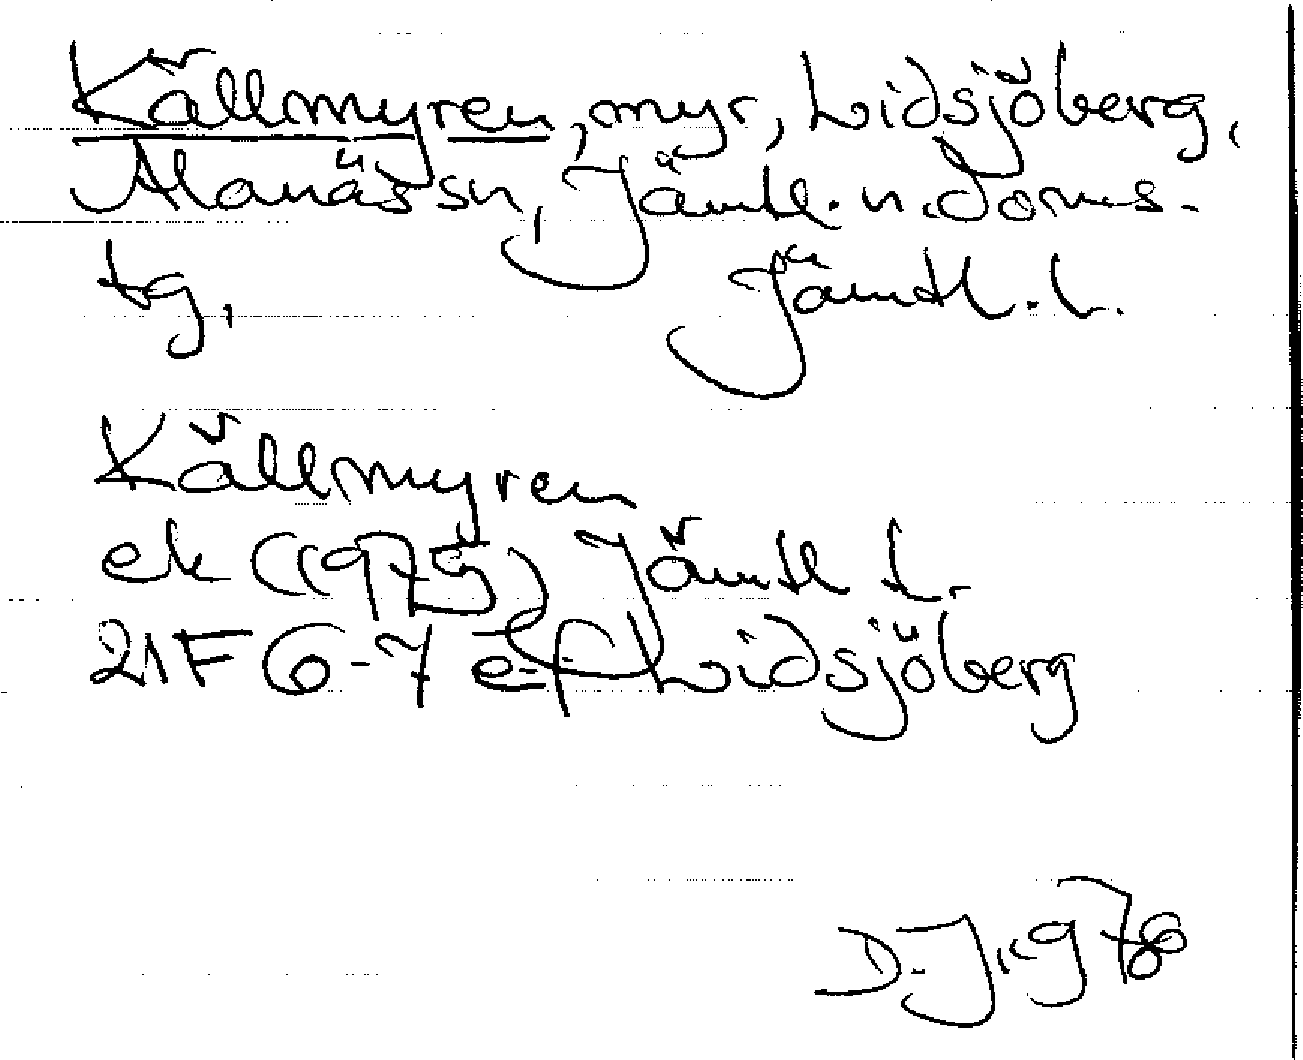 Källmyren, myr, Lidsjöberg,
Alanäs sn, Jämtl. n. doms-
tg, Jämtl. l.
Källmyren
ek (1975) Jämtl l.
21F 6-7 e-f Lidsjöberg
D. J. 1978